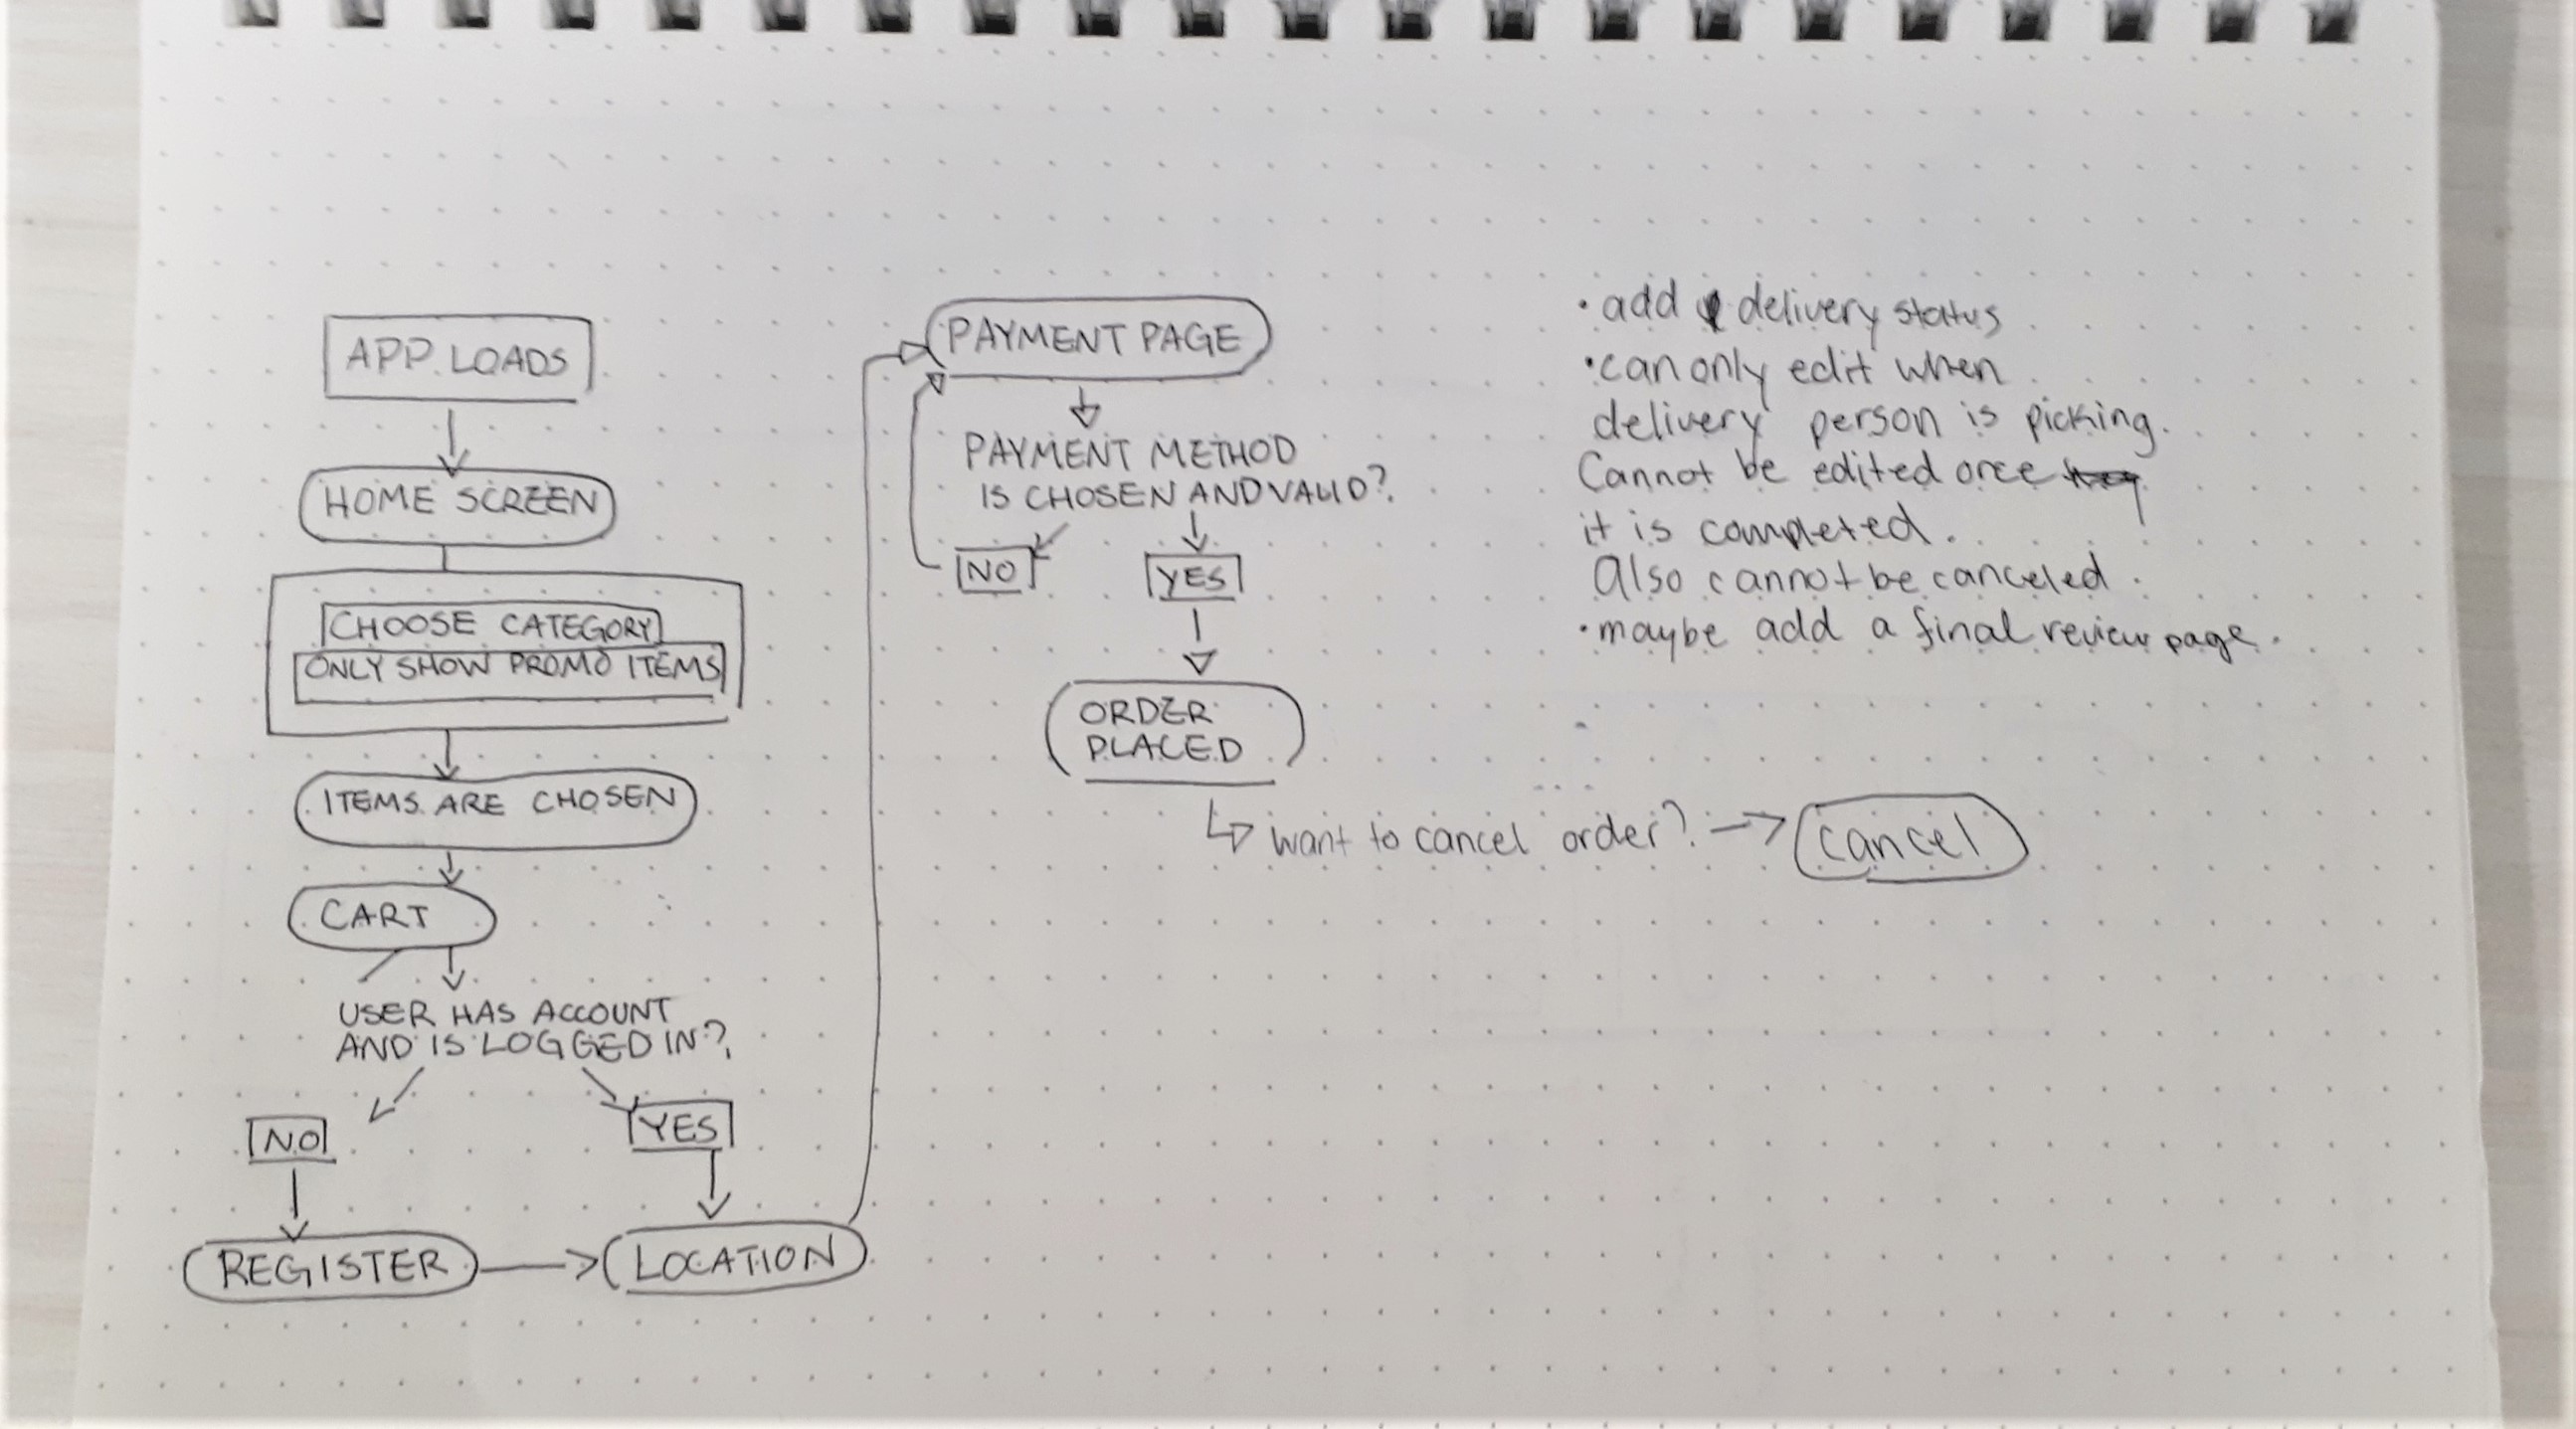 APP LOADS
HOME SCREEN
CHOOSE CATEGORY
ONLY SHOW PROMO ITEMS
ITEMS ARE CHOSEN
CART
USER HAS ACCOUNT
AND IS LOGGED IN?
NO
YES
REGISTER
LOCATION
PAYMENT PAGE
PAYMENT METHOD
IS CHOSEN AND VALID?
NO
YES
ORDER
PLACED
want to cancel order?
cancel
• add delivery status
• can only edit when
delivery person is picking.
Cannot be edited once
it is completed.
Also cannot be canceled.
• maybe add a final review page.